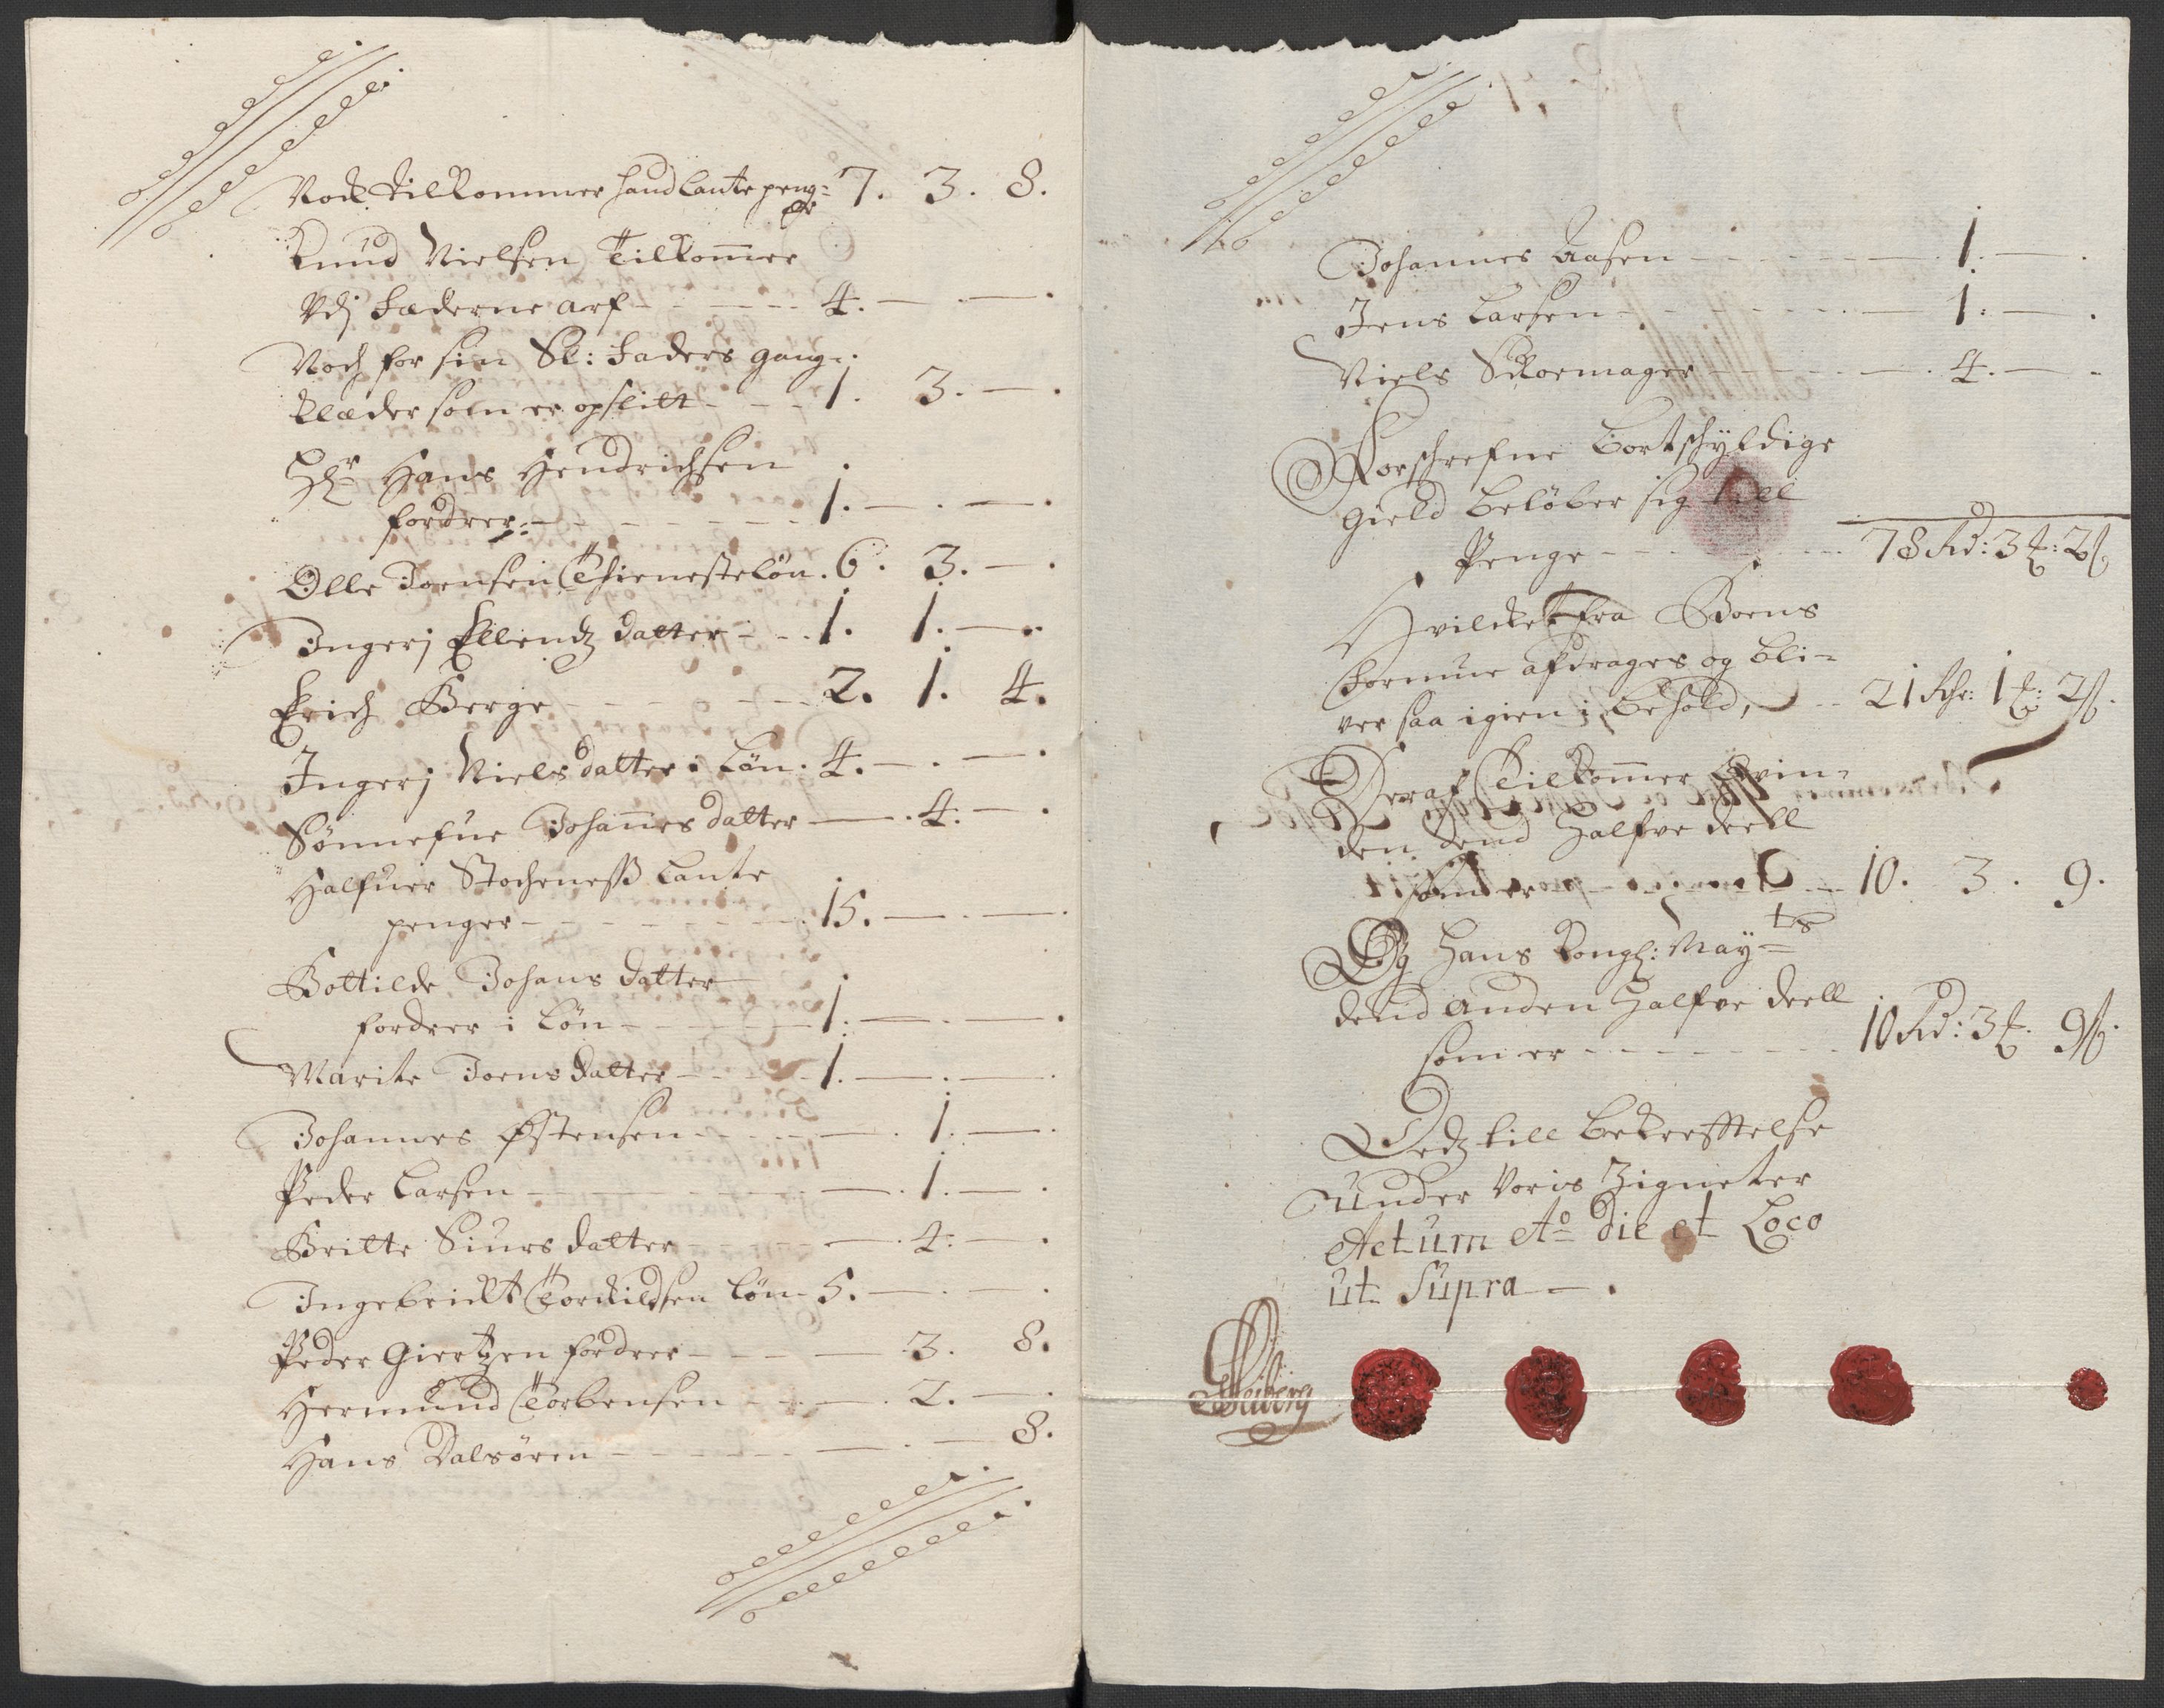 Nock tilkommer hand lante peng= 7. 3. 8.
er
Knud Nielsen Tilkommer
Udj Fæderne arf - - - - - 4. — . — .
Noch for sin Sl: Faders gang=
klæder som er opslitt - - - 1. 3. — .
Hr Hans Hendrichsen
fordrer - - - - - - - 1. — . — .
Olle Joensen Thieneste løn. 6. 3. — .
Ingerj Ellendz datter - - - 1. 1. — .
Erich Berge - - - - - - - 2. 1. 4.
Ingerj Niels datter i Løn. 4. — . — .
Sønnefue Johannes datter — . 4. — .
Halfuer Stocheness Lante
penger - - - - - - - 15. — . — .
Bottilde Johans datter
fordrer i Løn - - - - - 1. — . — .
Marite Joens datter - - - - 1. — . — .
Johannes Østensen - - - - — . 1. — .
Peder Larsen - - - - - - — . 1. — .
Britte Siurs datter - - - - — . 4. — .
Ingebricht Torkildsen Løn 5. — . — .
Peder Giertzen fordrer - - - — 3. 8.
Hermund Torbensen - - - — . 2. — .
Hans Dalsøren - - - - - — . — 8.
Johannes Aasen - - - - - — . 1. — .
Jens Larsen - - - - - - - — 1. — .
Niels Skoemager - - - - - — . 4. — .
Forschrefne bortschyldige
gield beløber sig till
Penge - - - - - 78 Rd: 3 ₰: 2 ß
Hvilcket fra Boens
Formue afdrages og bli=
ver saa igien i behold, - - 21 Rdr: 1 ₰: 2 ß.
Deraf Tilkommer Qvin=
den dend halfve deell
som er - - - - - - - 10. 3. 9.
Og Hans Kongl: May=tes
dend anden halfve deell
som er - - - - - - - - 10 Rd: 3 ₰. 9 ß.
Dedz till bekrefftelse
under voris Zigneter
Actum Ao die et Loco
ut Supra — .